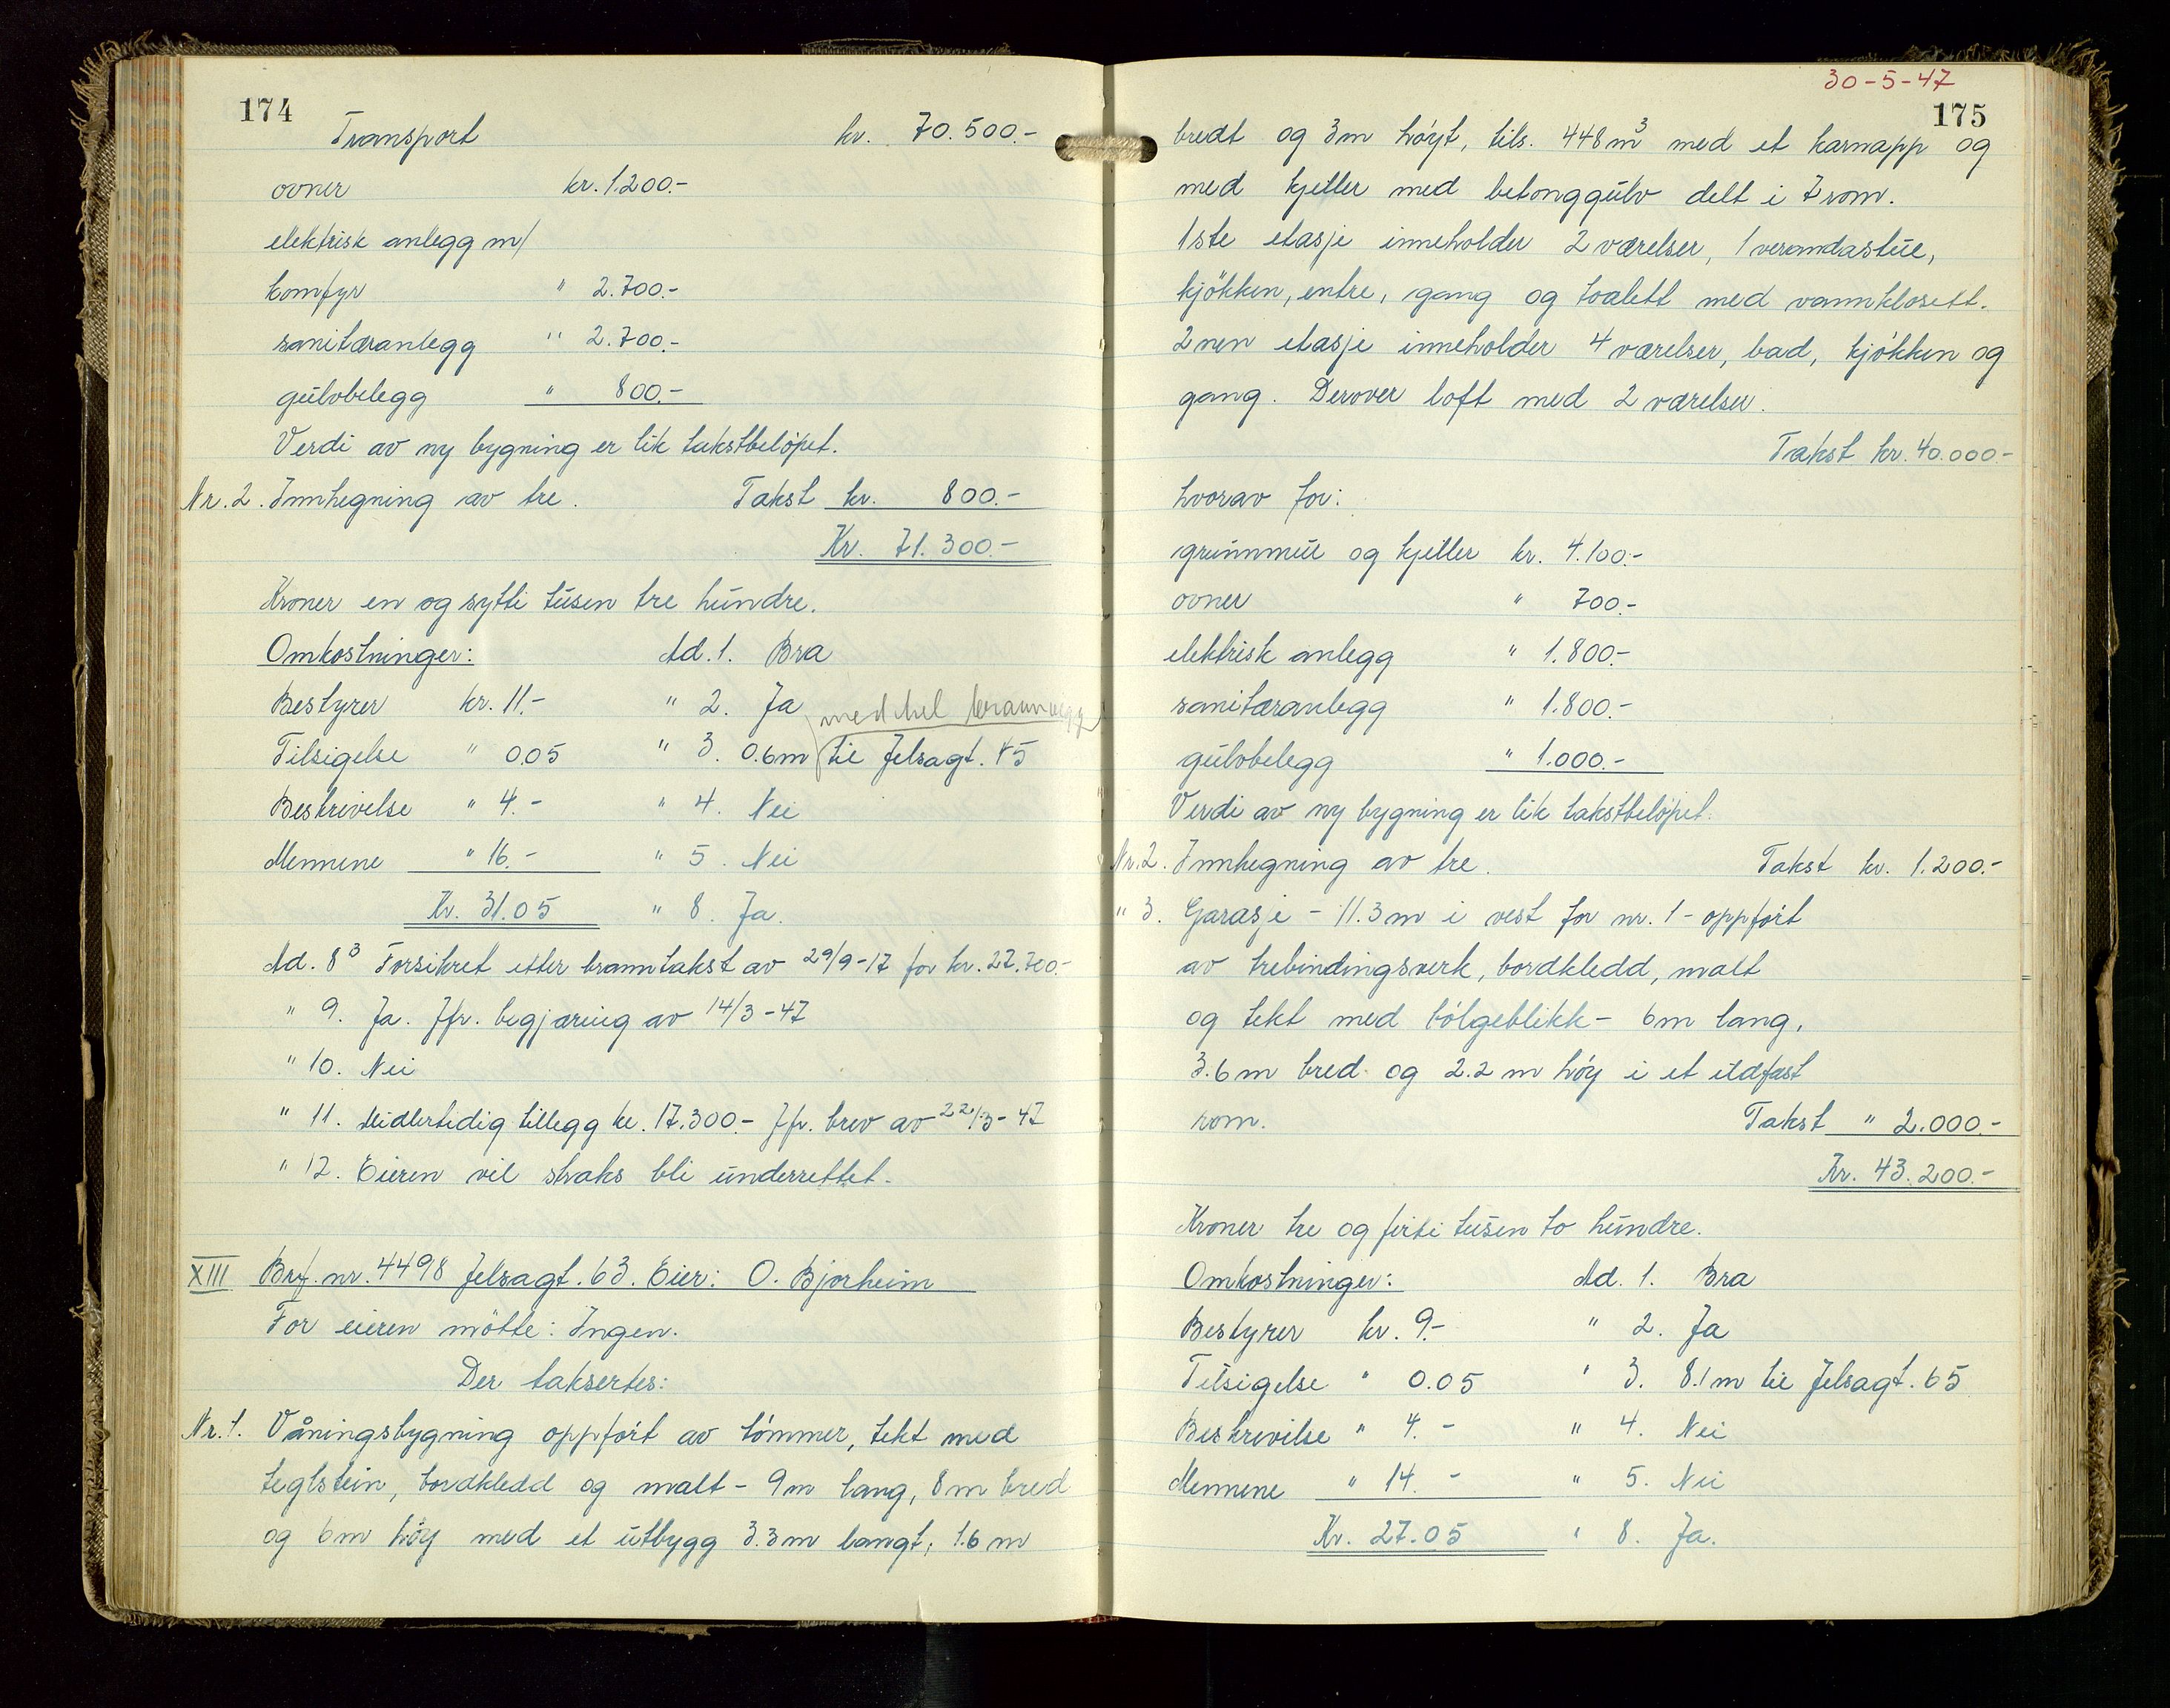 174
Transport kr. 70.500.-
ovner kr. 1.200.-
elektrisk anlegg m/
komfyr " 2.700.-
sanitæranlegg " 2.700.-
gulvbelegg " 800.-
Verdi av ny bygning er lik takstbeløpet.
Nr. 2. Innhegning av tre. Takst kr. 800.-
Kr. 71.300.-
Kroner en og sytti tusen tre hundre.
Omkostninger: Ad. 1. Bra
Bestyrer kr. 11.- " 2. Ja med hel brannvegg
Tilsigelse " 0.05 " 3. 0.6m til Jelsagt. 45
Beskrivelse " 4.- " 4. Nei
Mennene " 16.- " 5. Nei
Kr. 31.05 " 8. Ja.
Ad. 8³ Forsikret etter branntakst av 29/9-17 for kr. 27.700.-
" 9. Ja. Jfr. begjæring av 14/3-47
" 10. Nei
" 11. Midlertidig tillegg kr. 17.300.- Jfr. brev av 22/3-47
" 12. Eieren vil straks bli underrettet.
XIII Brf. nr. 4498 Jelsagt. 63. Eier: O. Bjorheim
For eieren møtte: Ingen.
Der taksertes:
Nr. 1. Våningsbygning oppført av tømmer, tekt med
teglstein, bordkledd og malt - 9m lang, 8m bred
og 6m høy med et utbygg 3.3m langt, 1.6m
30-5-47
175
bredt og 3m høyt, tils. 448m³ med et karnapp og
med kjeller med betonggulv delt i 7 rom.
1ste etasje inneholder 2 værelser, 1 verandastue,
kjøkken, entre, gang og toalett med vannklosett.
2nen etasje inneholder 4 værelser, bad, kjøkken og
gang. Derover loft med 2 værelser.
Takst kr. 40.000.-
hvorav for:
grunnmur og kjeller kr. 4.100.-
ovner " 700.-
elektrisk anlegg " 1.800.-
sanitæranlegg " 1.800.-
gulvbelegg " 1.000.-
Verdi av ny bygning er lik takstbeløpet.
Nr. 2. Innhegning av tre. Takst kr. 1.200.-
" 3. Garasje - 11.3m i vest for nr. 1 - oppført
av trebindingsverk, bordkledd, malt
og tekt med bølgeblikk - 6m lang,
3.6m bred og 2.2m høy i et ildfast
rom. Takst " 2.000.-
Kr. 43.200.-
Kroner tre og førti tusen to hundre.
Omkostninger: Ad. 1. Bra
Bestyrer kr. 9.- " 2. Ja
Tilsigelse " 0.05 " 3. 8.1m til Jelsagt. 65
Beskrivelse " 4.- " 4. Nei
Mennene " 14.- " 5. Nei
Kr. 27.05 " 8. Ja.